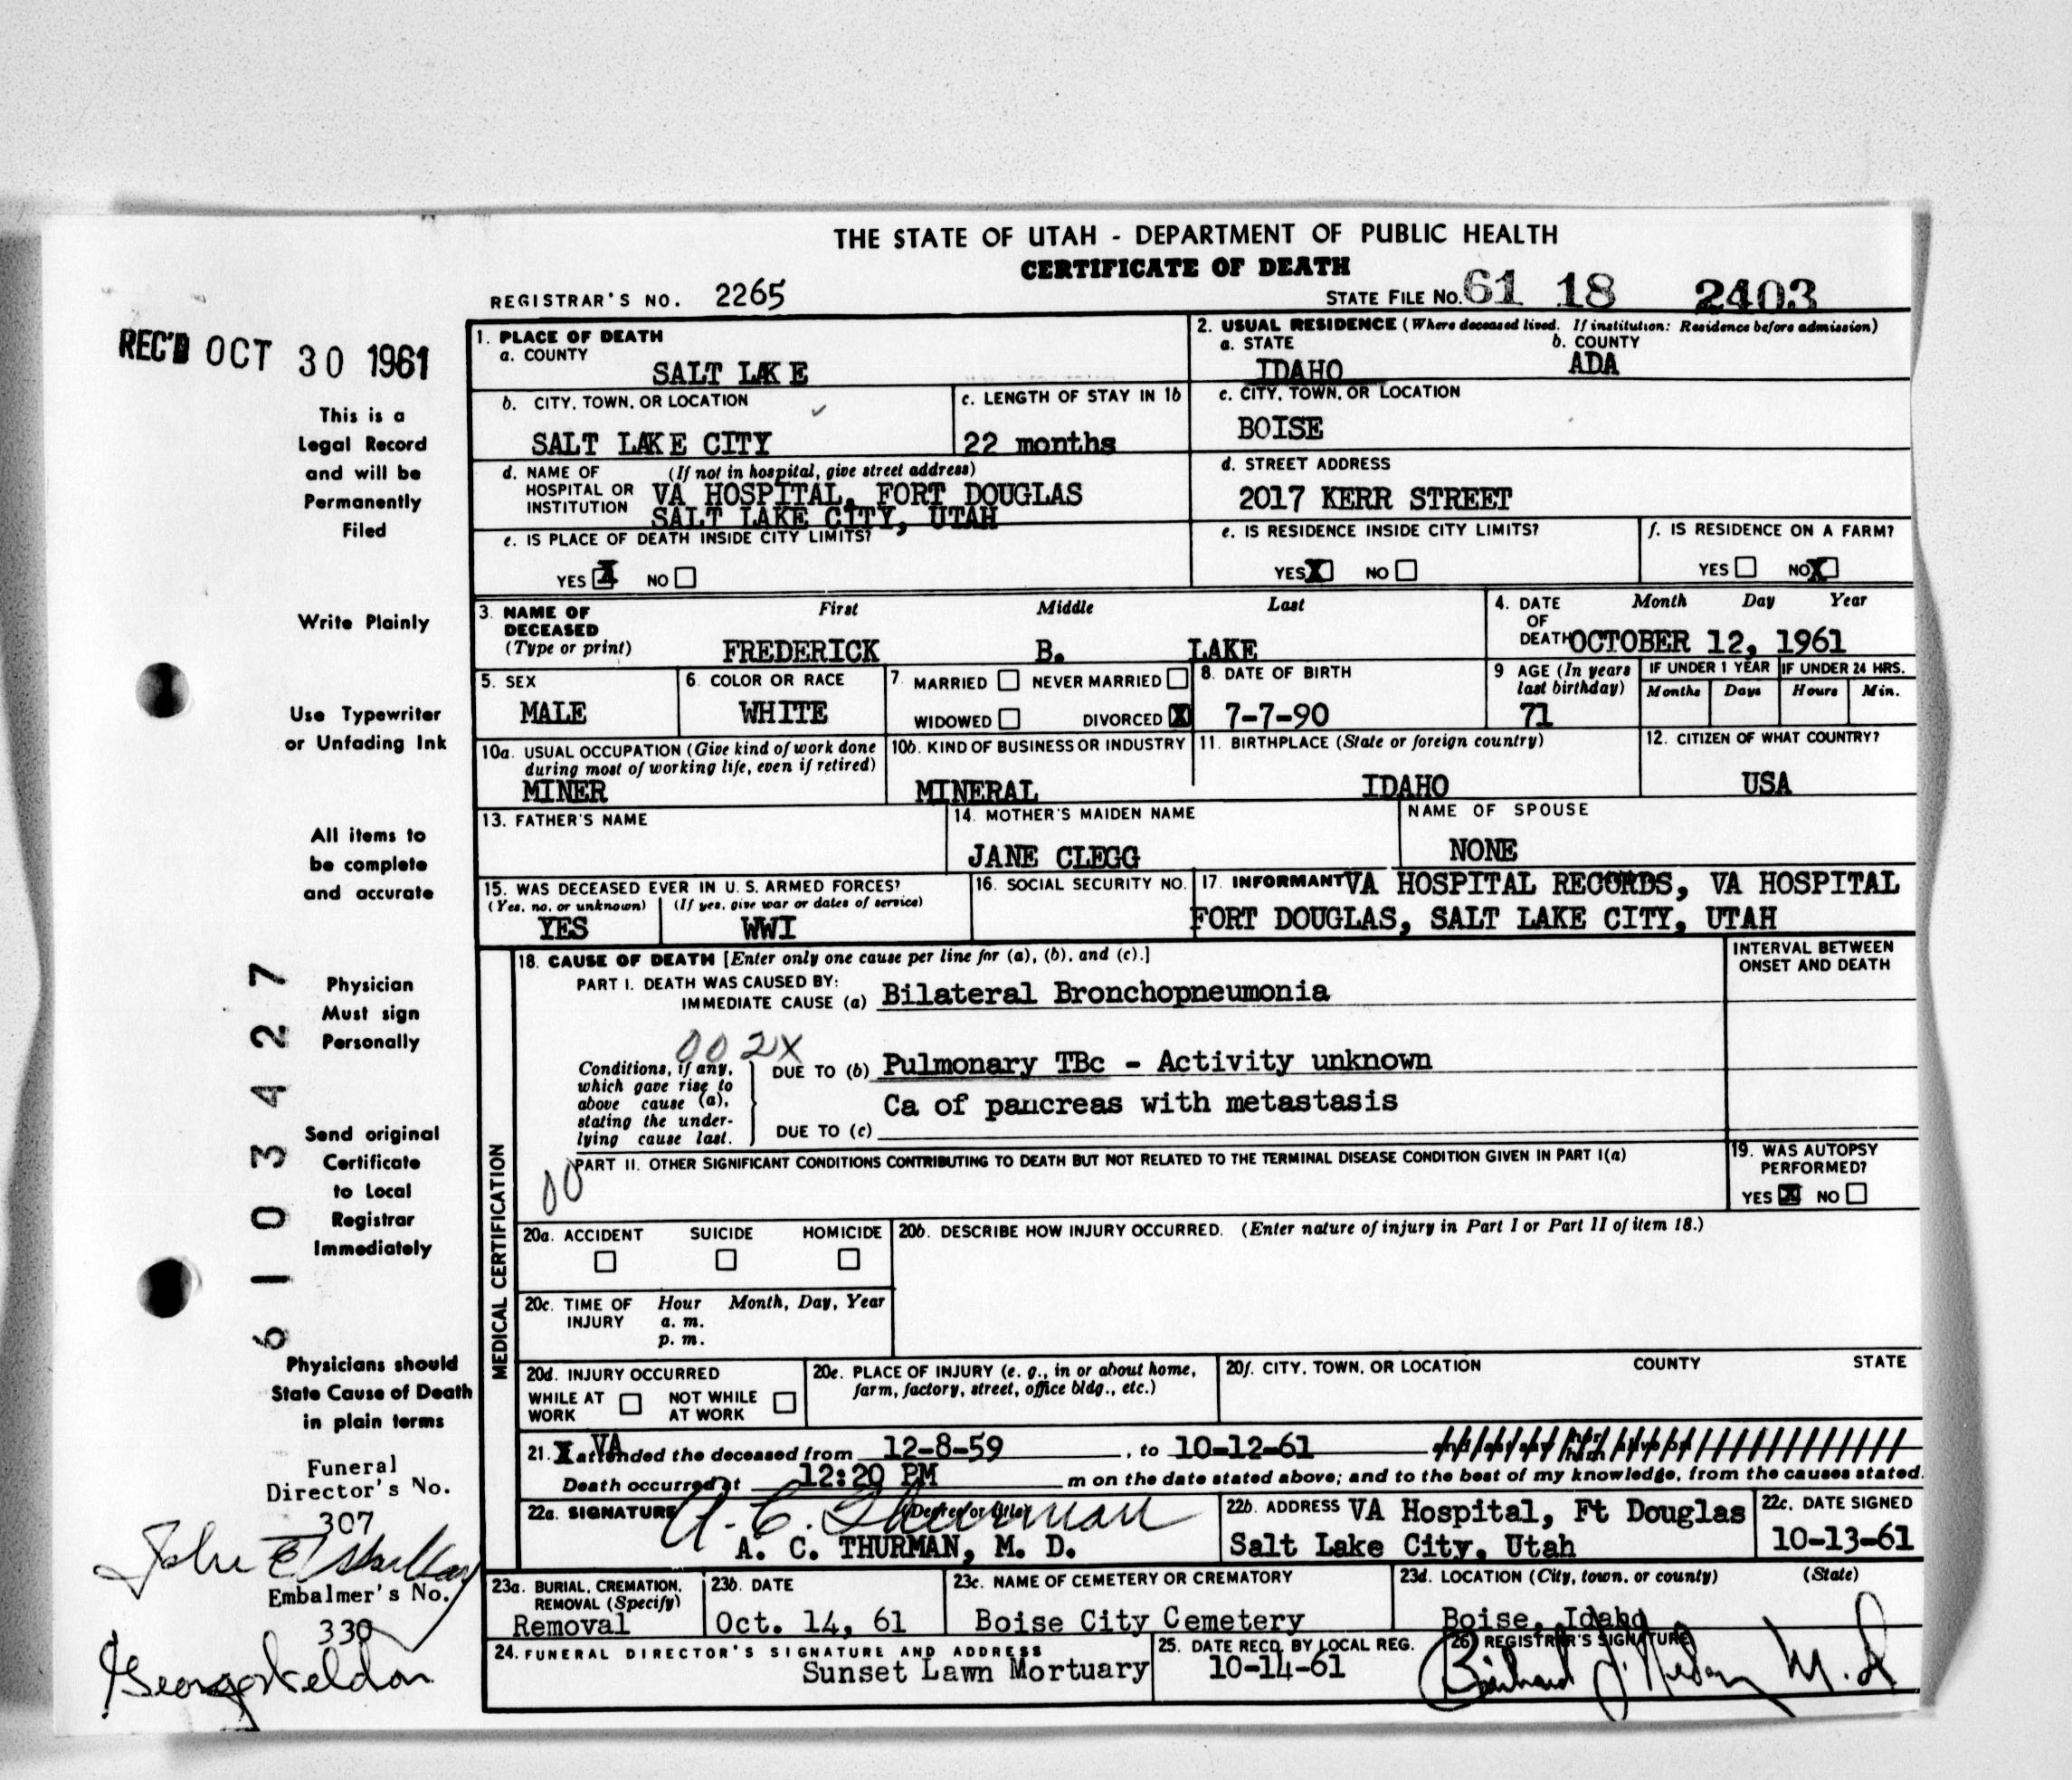 THE STATE OF UTAH - DEPARTMENT OF PUBLIC HEALTH
CERTIFICATE OF DEATH
REGISTRAR'S NO. 2265
STATE FILE No. 61 18 2403
REC'D OCT 30 1961
This is a
Legal Record
and will be
Permanently
Filed
Write Plainly
Use Typewriter
or Unfading Ink
All items to
be complete
and accurate
Physician
Must sign
Personally
Send original
Certificate
to Local
Registrar
Immediately
Physicians should
State Cause of Death
in plain terms
Funeral
Director's No.
307
John E
Embalmer's No.
330
George Weldon
6103427
1. PLACE OF DEATH
a. COUNTY
SALT LAKE
2. USUAL RESIDENCE (Where deceased lived. If institution: Residence before admission)
a. STATE
IDAHO
b. COUNTY
ADA
b. CITY, TOWN, OR LOCATION
SALT LAKE CITY
c. LENGTH OF STAY IN 1b
22 months
c. CITY, TOWN, OR LOCATION
BOISE
d. NAME OF (If not in hospital, give street address)
HOSPITAL OR
INSTITUTION
VA HOSPITAL, FORT DOUGLAS
SALT LAKE CITY, UTAH
d. STREET ADDRESS
2017 KERR STREET
e. IS PLACE OF DEATH INSIDE CITY LIMITS?
YES X NO
e. IS RESIDENCE INSIDE CITY LIMITS?
YES X NO
f. IS RESIDENCE ON A FARM?
YES NO X
3. NAME OF
DECEASED
(Type or print)
First Middle Last
FREDERICK B. LAKE
4. DATE
OF
DEATH
Month Day Year
OCTOBER 12, 1961
5. SEX
MALE
6. COLOR OR RACE
WHITE
7. MARRIED NEVER MARRIED
WIDOWED DIVORCED X
8. DATE OF BIRTH
7-7-90
9 AGE (In years
last birthday)
71
IF UNDER 1 YEAR
Months Days
IF UNDER 24 HRS.
Hours Min.
10a. USUAL OCCUPATION (Give kind of work done
during most of working life, even if retired)
MINER
10b. KIND OF BUSINESS OR INDUSTRY
MINERAL
11. BIRTHPLACE (State or foreign country)
IDAHO
12. CITIZEN OF WHAT COUNTRY?
USA
13. FATHER'S NAME
14. MOTHER'S MAIDEN NAME
JANE CLEGG
NAME OF SPOUSE
NONE
15. WAS DECEASED EVER IN U. S. ARMED FORCES?
(Yes, no, or unknown) (If yes, give war or dates of service)
YES WWI
16. SOCIAL SECURITY NO.
17. INFORMANT VA HOSPITAL RECORDS, VA HOSPITAL
FORT DOUGLAS, SALT LAKE CITY, UTAH
MEDICAL CERTIFICATION
18. CAUSE OF DEATH [Enter only one cause per line for (a), (b), and (c).]
INTERVAL BETWEEN
ONSET AND DEATH
PART I. DEATH WAS CAUSED BY:
IMMEDIATE CAUSE (a) Bilateral Bronchopneumonia
002X
Conditions, if any,
which gave rise to
above cause (a),
stating the under-
lying cause last.
DUE TO (b) Pulmonary TBc - Activity unknown
Ca of pancreas with metastasis
DUE TO (c)
00
PART II. OTHER SIGNIFICANT CONDITIONS CONTRIBUTING TO DEATH BUT NOT RELATED TO THE TERMINAL DISEASE CONDITION GIVEN IN PART I(a)
19. WAS AUTOPSY
PERFORMED?
YES X NO
20a. ACCIDENT SUICIDE HOMICIDE
20b. DESCRIBE HOW INJURY OCCURRED. (Enter nature of injury in Part I or Part II of item 18.)
20c. TIME OF
INJURY
Hour Month, Day, Year
a. m.
p. m.
20d. INJURY OCCURRED
WHILE AT
WORK
NOT WHILE
AT WORK
20e. PLACE OF INJURY (e. g., in or about home,
farm, factory, street, office bldg., etc.)
20f. CITY, TOWN, OR LOCATION COUNTY STATE
21. X VA attended the deceased from 12-8-59, to 10-12-61
Death occurred at 12:20 PM m on the date stated above; and to the best of my knowledge, from the causes stated.
22a. SIGNATURE (Degree or title)
A. C. Thurman
A. C. THURMAN, M. D.
22b. ADDRESS VA Hospital, Ft Douglas
Salt Lake City, Utah
22c. DATE SIGNED
10-13-61
23a. BURIAL, CREMATION,
REMOVAL (Specify)
Removal
23b. DATE
Oct. 14, 61
23c. NAME OF CEMETERY OR CREMATORY
Boise City Cemetery
23d. LOCATION (City, town, or county) (State)
Boise, Idaho
24. FUNERAL DIRECTOR'S SIGNATURE AND ADDRESS
Sunset Lawn Mortuary
25. DATE RECD. BY LOCAL REG.
10-14-61
26. REGISTRAR'S SIGNATURE
M.D